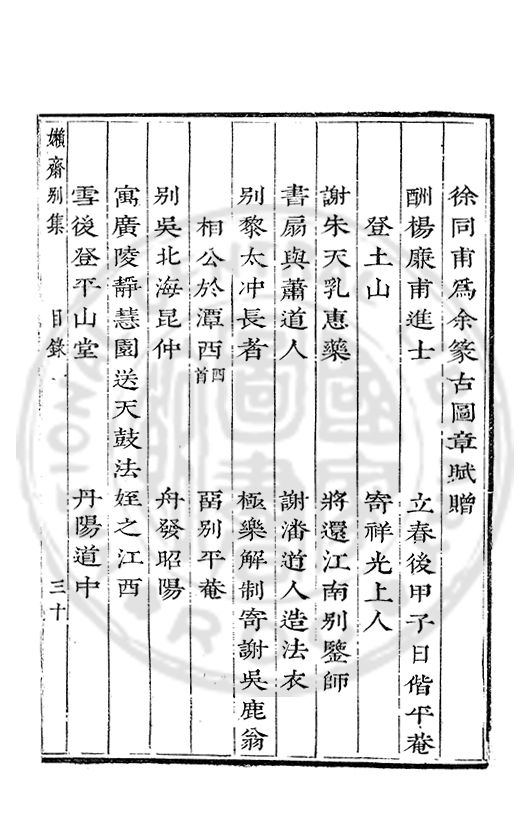 徐同甫爲余篆古圖章賦贈
酬楊廉甫進士　立春後甲子日偕平菴
登土山　寄祥光上人
謝朱天乳惠藥　將還江南別鑒師
書扇與蕭道人　謝潘道人造法衣
別黎太冲長者　極樂解制寄謝吳鹿翁
相公於潭西四首　留別平菴
別吳北海昆仲　舟發昭陽
寓廣陵靜慧園送天鼓法姪之江西
雪後登平山堂　丹陽道中
嬾齋別集　目錄　三十